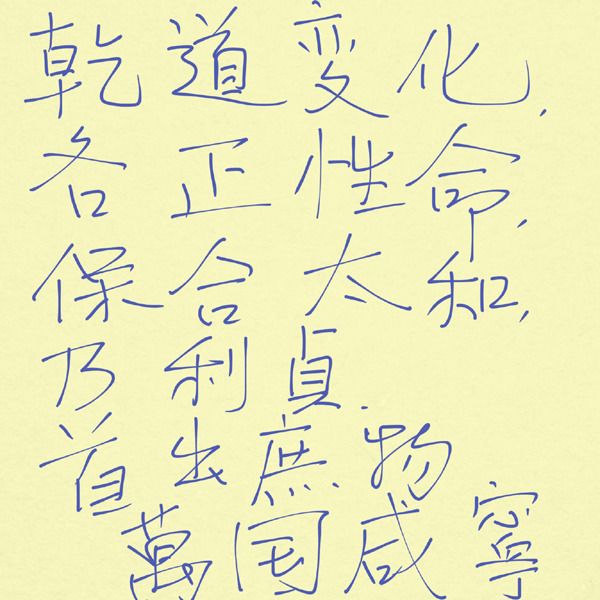 乾道変化,
各正性命,
保合太和,
乃利貞.
首出庶物
萬国咸寧